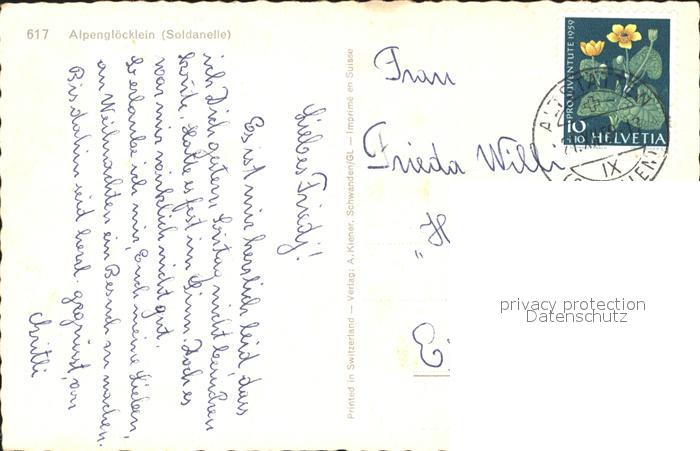 617 Alpenglöcklein (Soldanelle)
Liebes Friedy!
Es ist mir herzlich leid, dass
ich Dich gestern, Sonntag nicht besuchen
konnte. Hatte es fest im Sinn. Doch es
war mir wirklich nicht gut.
So erlaube ich mir, Euch meine Lieben,
an Weihnachten ein Besuch zu machen.
Bis dahin seid herzl. gegrüsst, von
Printed in Switzerland — Verlag: A. Kiener, Schwanden/GL — Imprimé en Suisse
Frau
Frieda Willi
"H
E
PRO JUVENTUTE 1959
10
10
HELVETIA
IX
privacy protection
Datenschutz